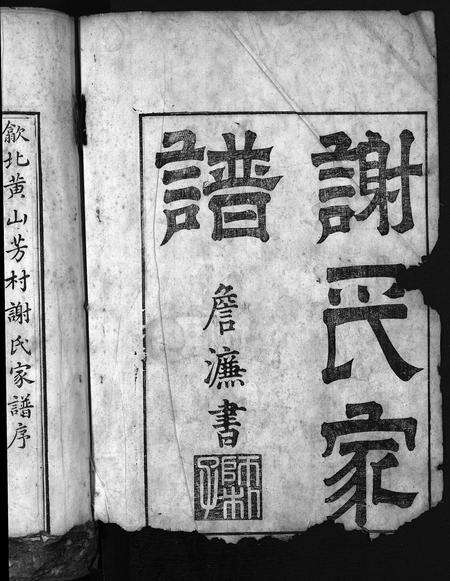 謝氏家
譜
詹濂書
歙北黃山芳村謝氏家譜序